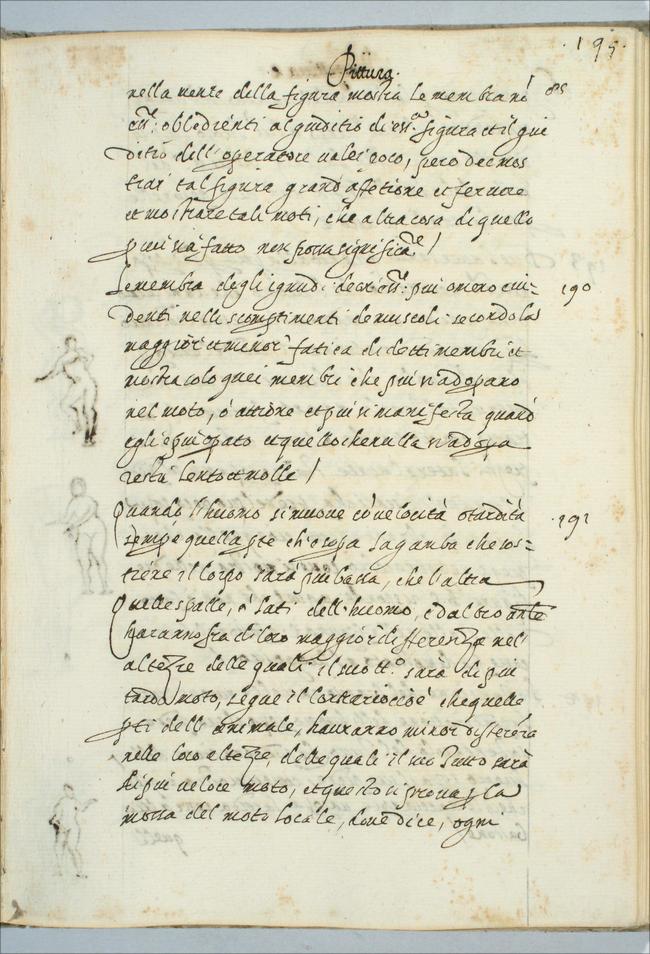 .195.
Pittura.
nella mente della figura mostra le membra nõ
obbedienti al giuditio di figura et il giu
ditio dell'operatore vale poco, pero dee mos
trar tal figura grand'affetione et fervore
et mostrare tali moti, che altra cosa di quello
p cui sia fatto non possa significare!
Le membra degli ignudi piu o meno evi-
denti nelli scoprimenti de muscoli secondo la
maggior et minor fatica di detti membri et
mostra solo quei membri che piu s'adoprano
nel moto, ò attione et piu si manifesta quand
egli è piu et quello che nulla s'adopra
resti lento et molle!
190
Quando l'huomo si move cõ velocità o tardità
sempre quella pte ch'è sopra la gamba che sos=
tiene il corpo sarà piu bassa, che l'altra
191
Quelle spalle, ò lati dell'huomo, ò d'altro
haranno fra di loro maggior differenza nel
altezze delle quali il suo tt.º sara di piu
tardo moto, segue il contrario cioè che quelle
pti dell'animale, havranno minor differẽza
nelle loro altezze, delle quali il suo tutto sarà
di piu veloce moto, et questo si prova p la
del moto locale, dove dice, ogni